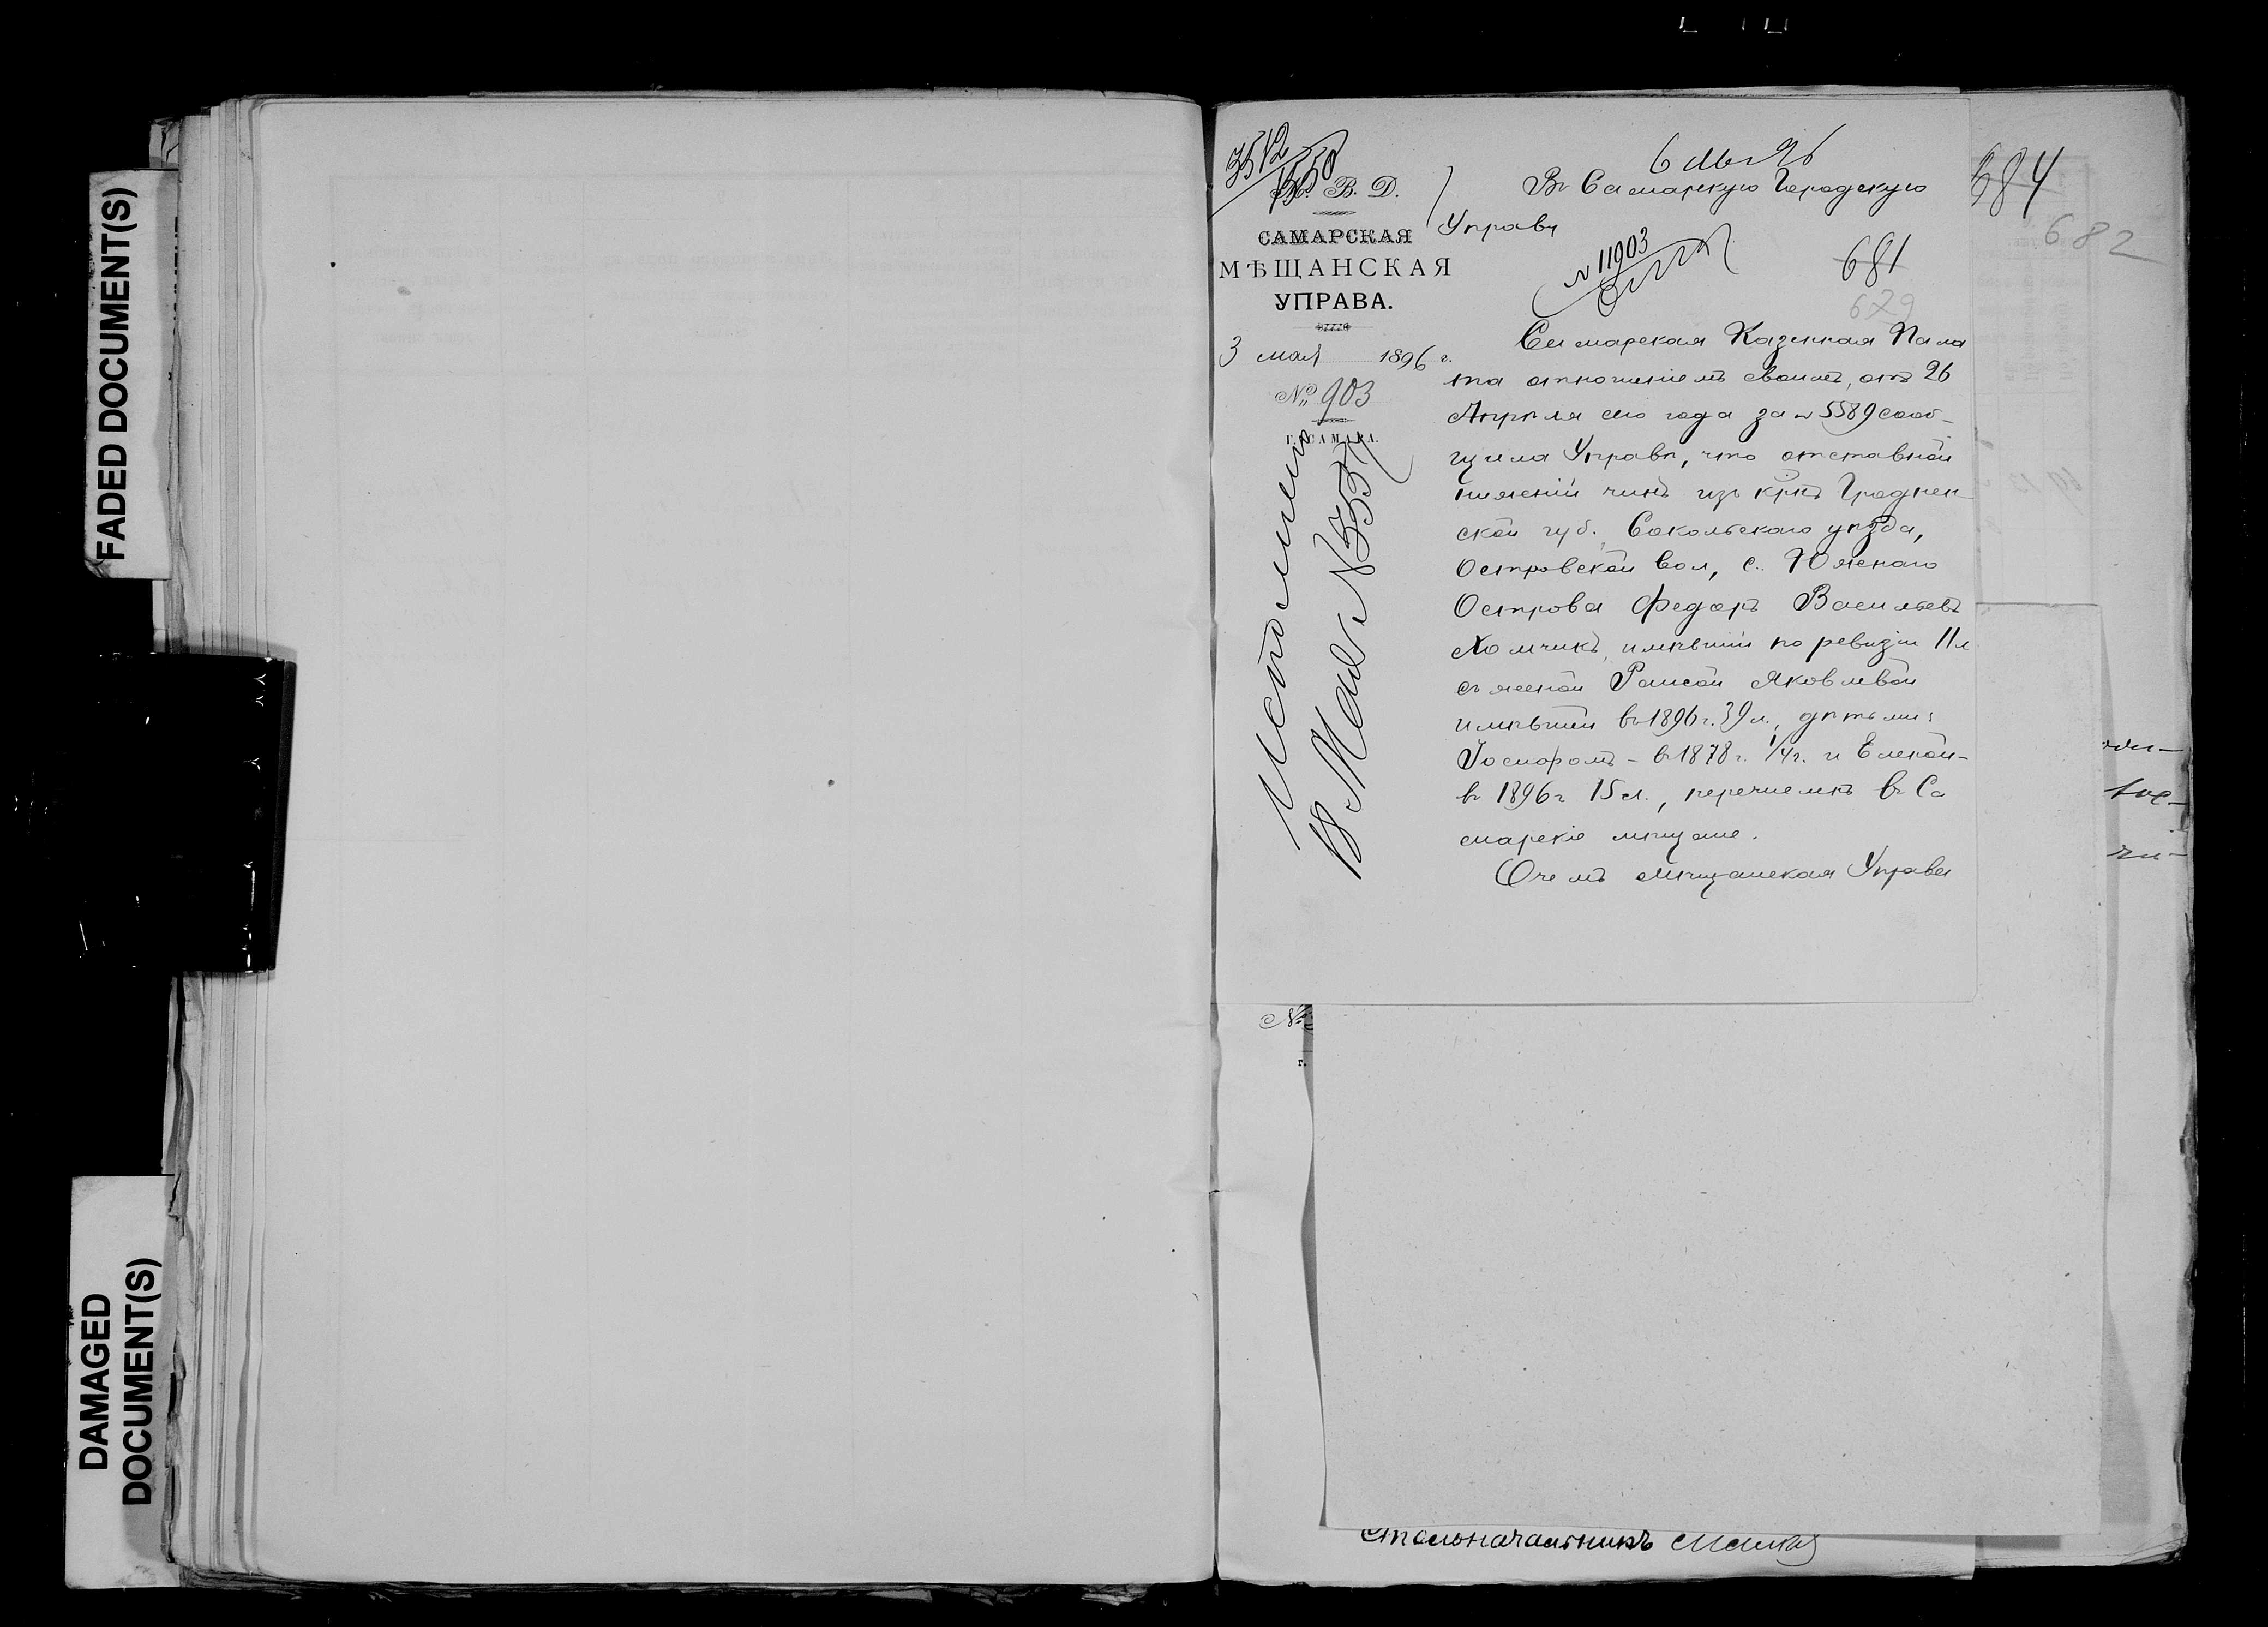 FADED DOCUMENT(S)
DAMAGED
DOCUMENT(S)
3512
1550
М. В. Д.
САМАРСКАЯ
МѢЩАНСКАЯ
УПРАВА.
3 мая 1896 г.
№ 903
Г. САМАРА.
Исполнено
13 Мая №
6 Мая 96
Въ Самарскую Городскую
Управу
№ 11903
684
682
681
679
Самарская Казенная Пала
та отношеніемъ своимъ, отъ 26
Апрѣля сего года за № 5589 сооб-
щила Управѣ, что отставной
нижній чинъ изъ крнъ Гроднен-
ской губ. Сокольскаго уѣзда,
Островской вол, с. Южнаго
Острова Федоръ Васильевъ
Хомчикъ, имѣвшій по ревизіи 11 л
съ женой Раисой Яковлевой
имѣвшей въ 1896 г. 39 л., дѣтьми:
Іосифомъ - въ 1878 г. 1/4 г. и Еленой -
въ 1896 г 15 л., перечисленъ въ Са
марскіе мѣщане.
О чемъ Мѣщанская Управа
№
г.
Столоначальникъ